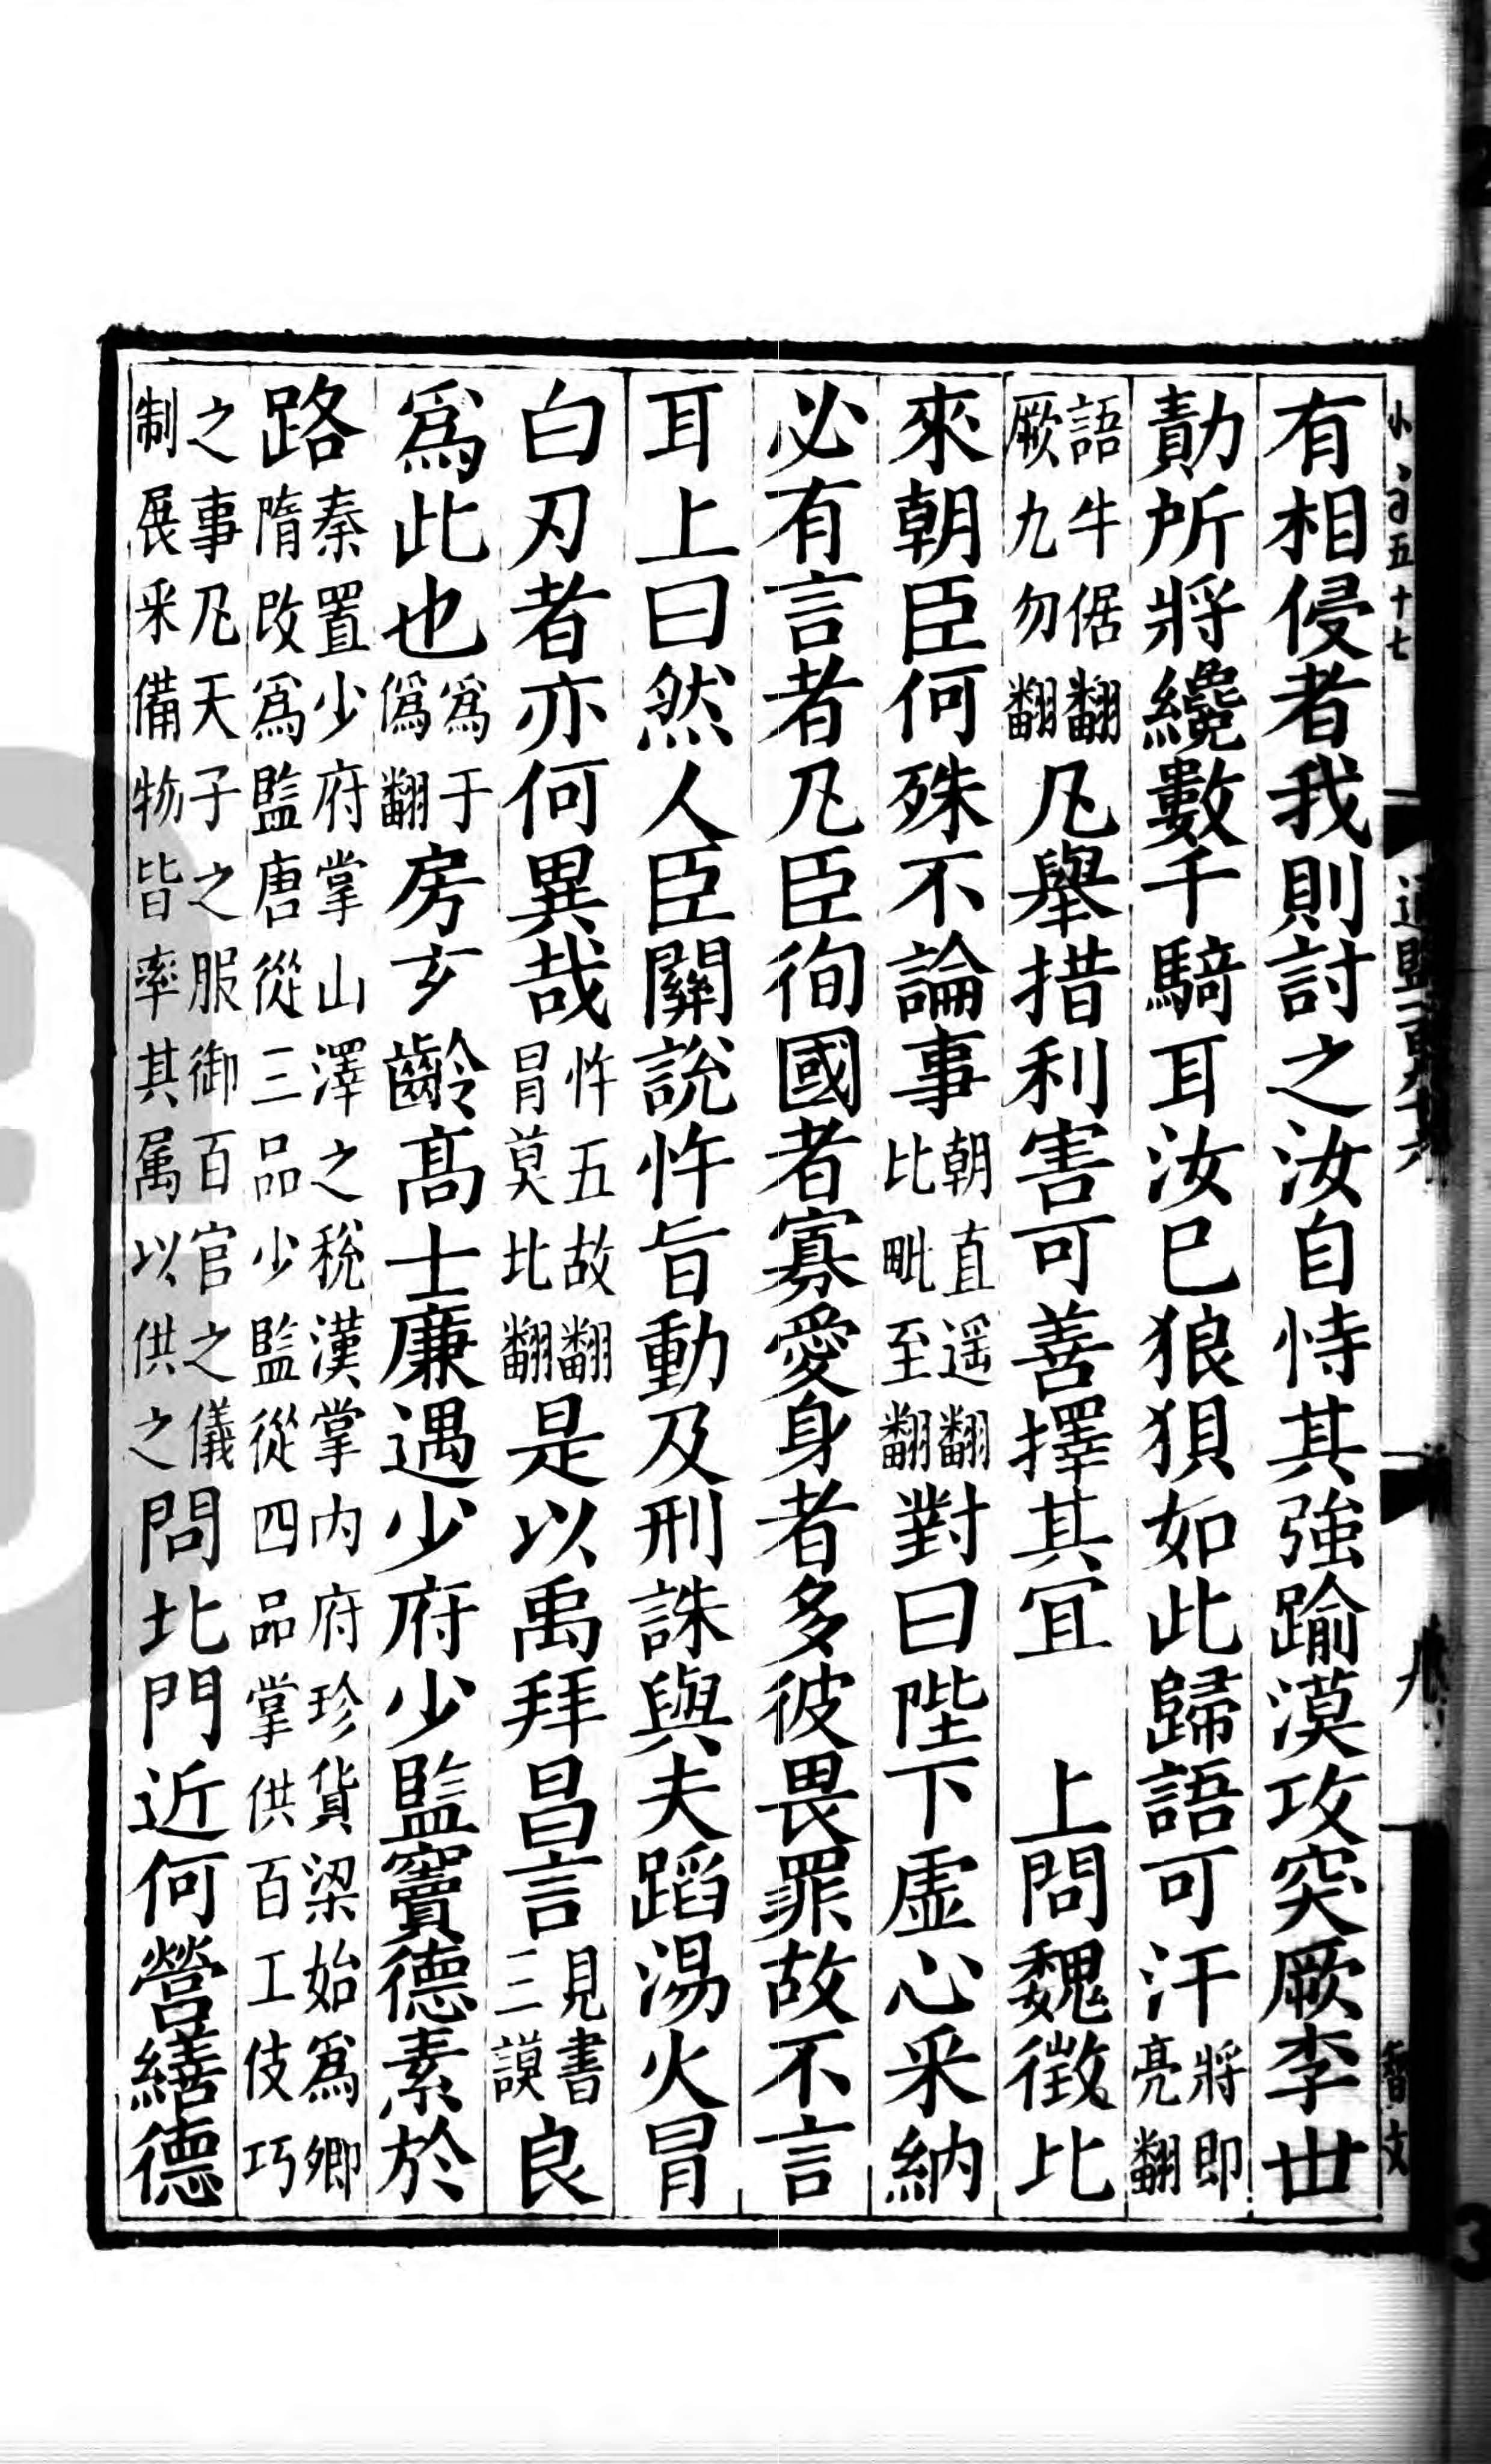 有相侵者我則討之汝自恃其強踰漠攻突厥李世
勣所將纔數千騎耳汝已狼狽如此歸語可汗將即亮翻
語牛倨翻厥九勿翻凡舉措利害可善擇其宜　上問魏徵比
來朝臣何殊不論事朝直遥翻比毗至翻對曰陛下虛心采納
必有言者凡臣徇國者寡愛身者多彼畏罪故不言
耳上曰然人臣關說忤旨動及刑誅與夫蹈湯火冒
白刃者亦何異哉忤五故翻冒莫北翻是以禹拜昌言見書三謨良
爲此也爲于僞翻房玄齡高士廉遇少府少監竇德素於
路秦置少府掌山澤之稅漢掌内府珍貨梁始爲卿隋改爲監唐從三品少監從四品掌供百工伎巧
之事凡天子之服御百官之儀制展采備物皆率其属以供之問北門近何營繕德